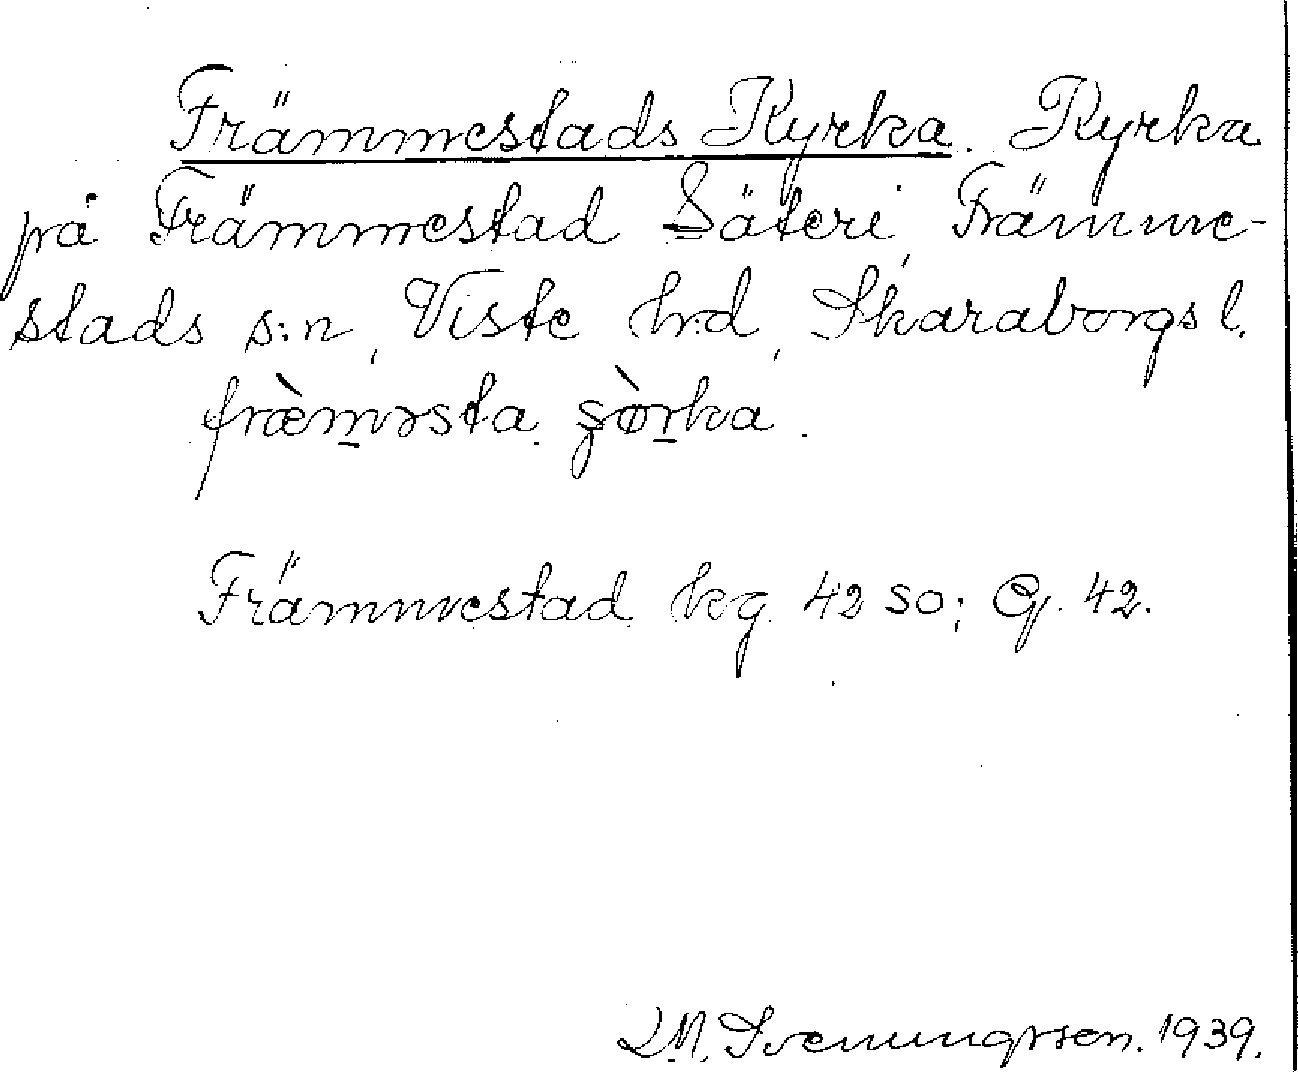 Främmestads Kyrka. Kyrka
på Främmestad Säteri, Främme-
stads s:n, Viste h:d, Skaraborgs l.
fræ̀m̲əsta ʂø̀r̲ka.
Främmestad kg 42 so; G. 42.
Svenungsson. 1939.